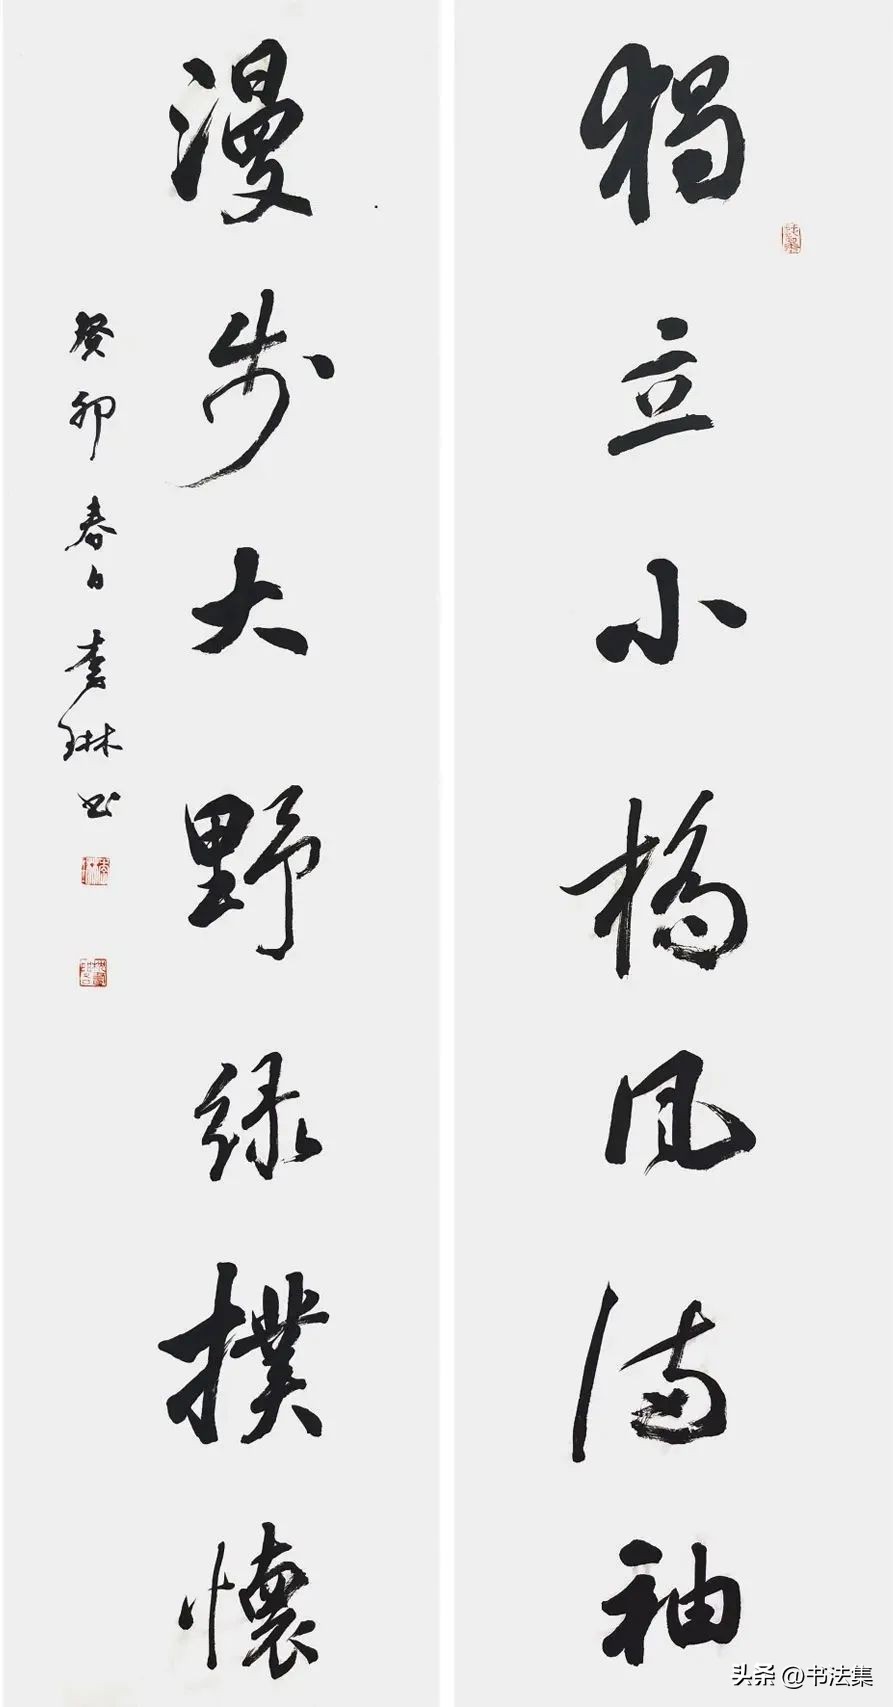 獨立小橋風满袖
漫步大野绿撲懷
癸卯春日李琳书
头条 @书法集